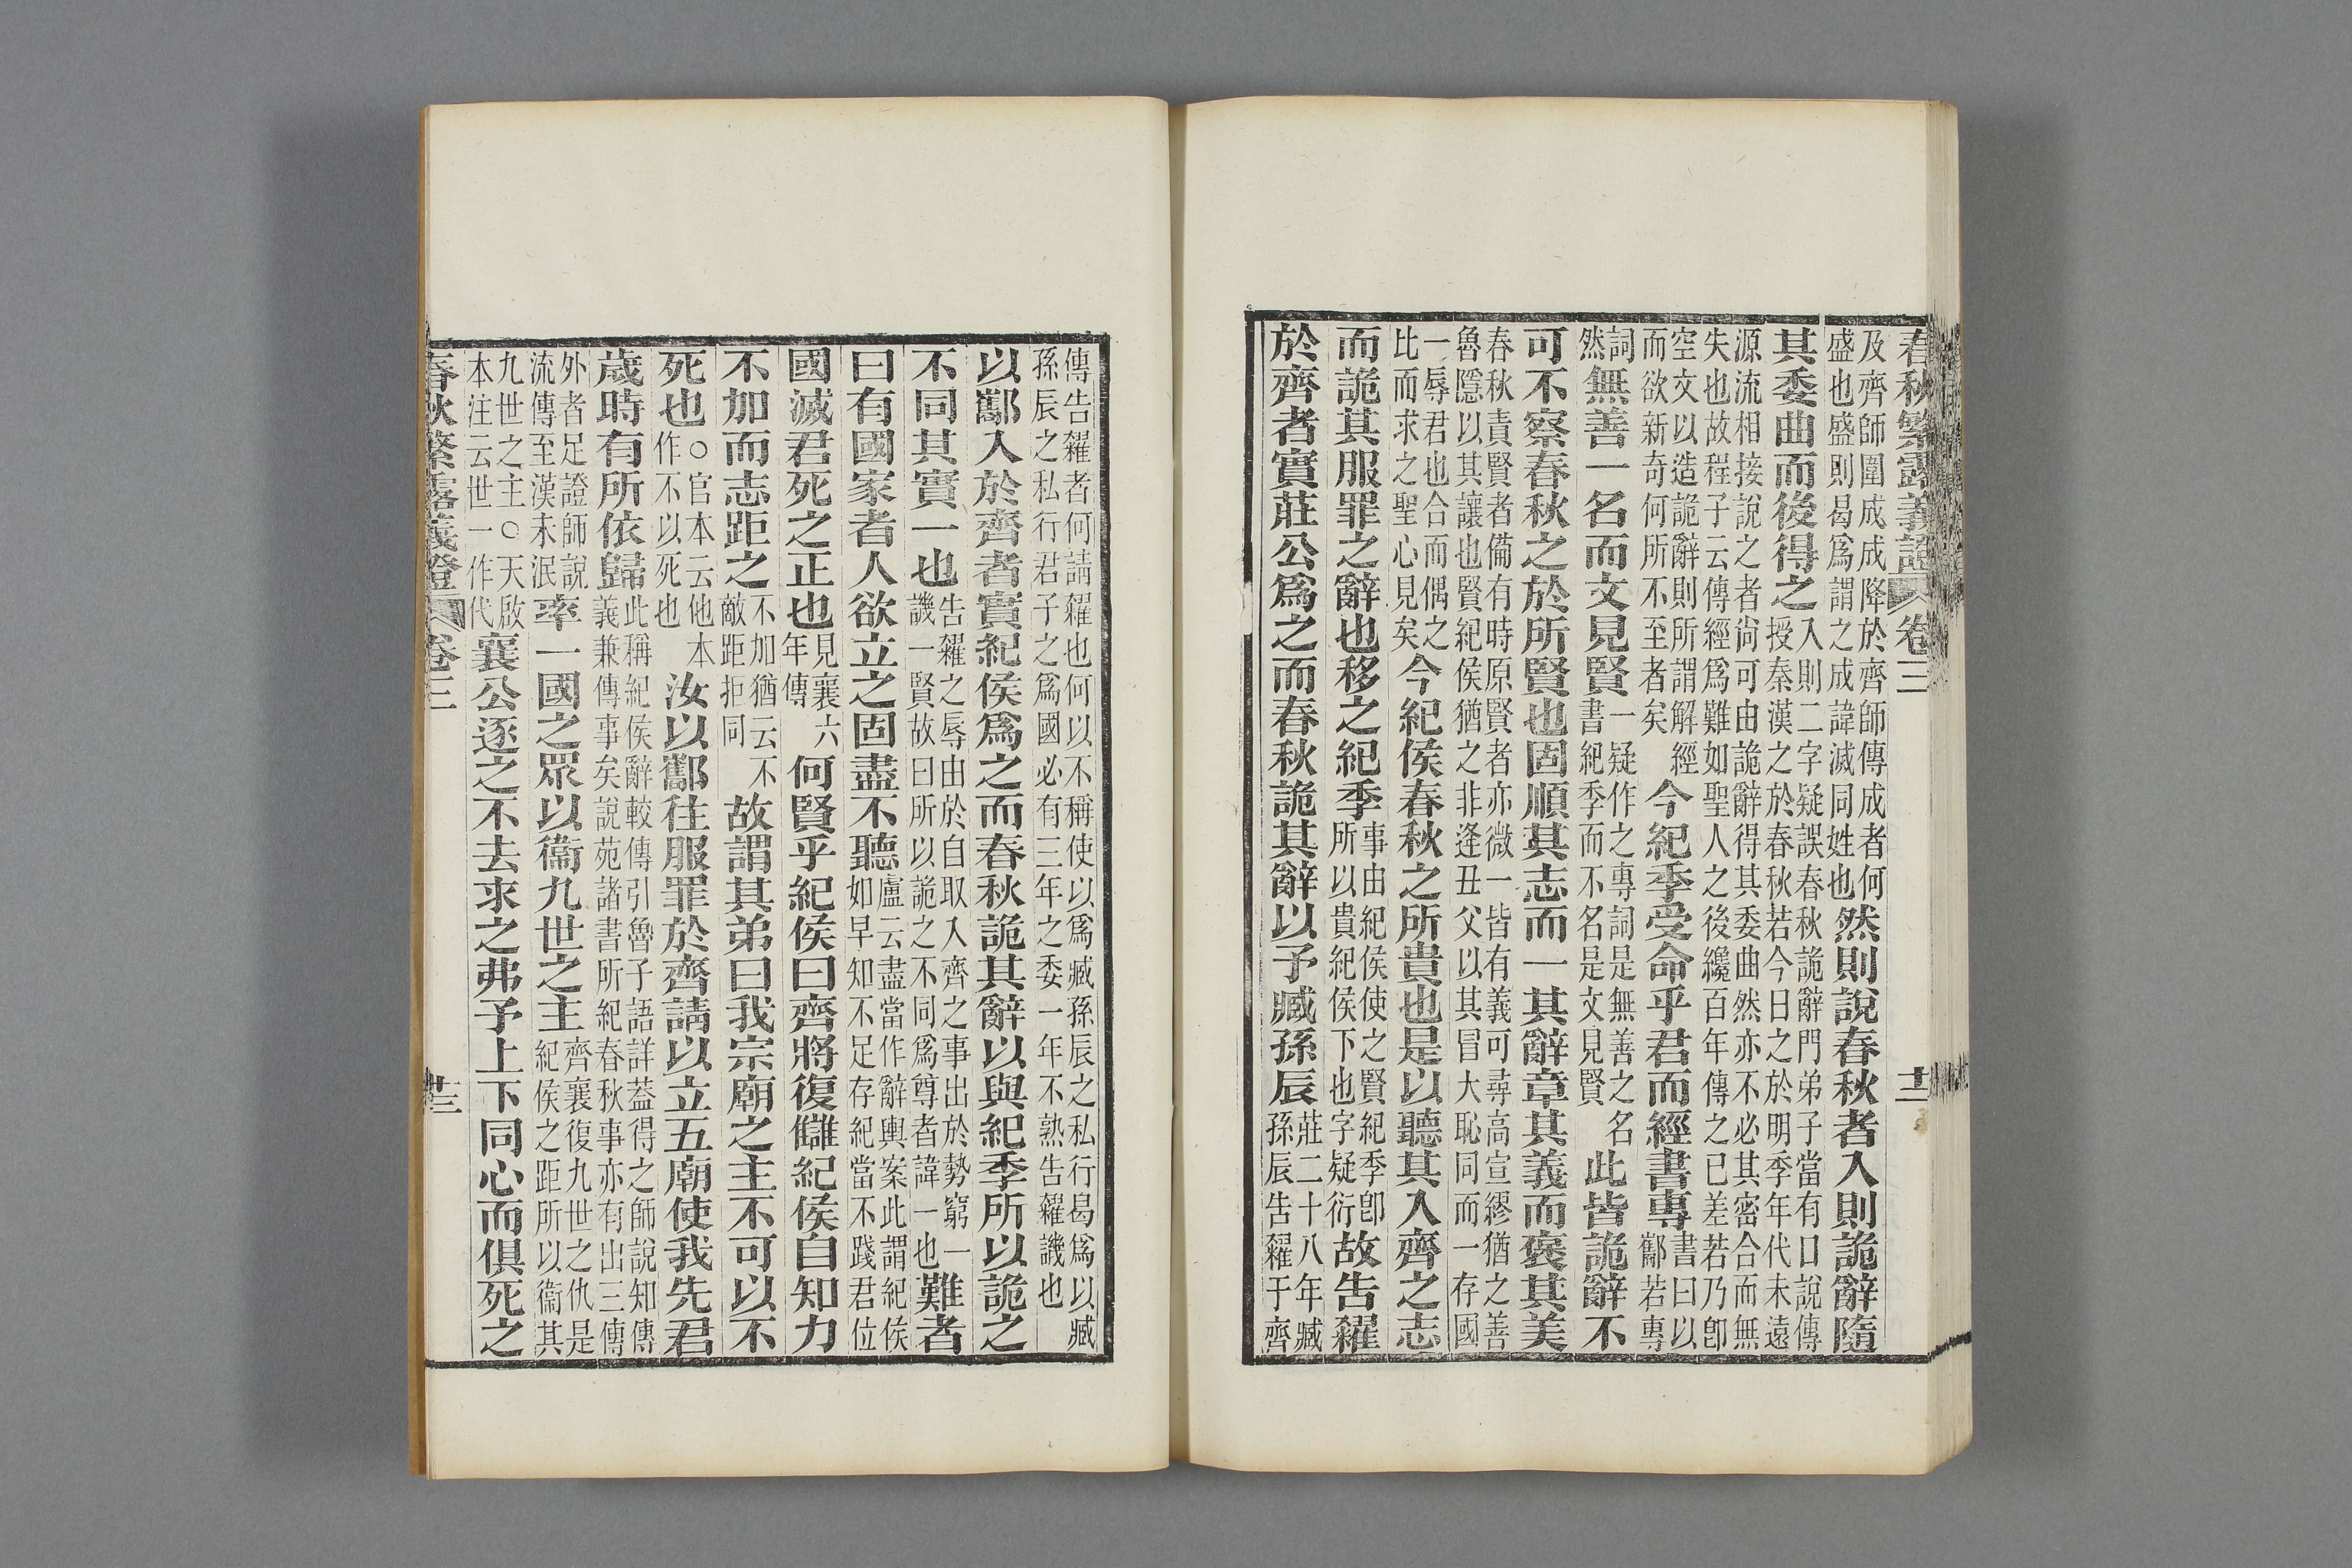 春秋繁露義證 卷三 十二
及齊師圍成成降於齊師傳成者何
盛也盛則曷爲謂之成諱滅同姓也
然則說春秋者入則詭辭隨
其委曲而後得之
入則二字疑誤春秋詭辭門弟子當有口說傳
授秦漢之於春秋若今日之於明季年代未遠
源流相接說之者尚可由詭辭得其委曲然亦不必其密合而無
失也故程子云傳經爲難如聖人之後纔百年傳之已差若乃卽
空文以造詭辭則所謂解經
而欲新奇何所不至者矣
今紀季受命乎君而經書專
書曰以
酅若專
詞
然
無善一名而文見賢
一疑作之專詞是無善之名
書紀季而不名是文見賢
此皆詭辭不
可不察春秋之於所賢也固順其志而一其辭章其義而褒其美
春秋責賢者備有時原賢者亦微一皆有義可尋高宣繆猶之善
魯隱以其讓也賢紀侯猶之非逄丑父以其冒大恥同而一存國
一辱君也合而偶之
比而求之聖心見矣
今紀侯春秋之所貴也是以聽其入齊之志
而詭其服罪之辭也移之紀季
事由紀侯使之賢紀季卽
所以貴紀侯下也字疑衍
故告糴
於齊者實莊公爲之而春秋詭其辭以予臧孫辰
莊二十八年臧
孫辰告糴于齊
傳告糴者何請糴也何以不稱使以爲臧孫辰之私行曷爲以臧
孫辰之私行君子之爲國必有三年之委一年不熟告糴譏也
以酅入於齊者實紀侯爲之而春秋詭其辭以與紀季所以詭之
不同其實一也
告糴之辱由於自取入齊之事出於勢窮一
譏一賢故曰所以詭之不同爲尊者諱一也
難者
曰有國家者人欲立之固盡不聽
盧云盡當作辭輿案此謂紀侯
如早知不足存紀當不踐君位
國滅君死之正也
見襄六
年傳
何賢乎紀侯曰齊將復讎紀侯自知力
不加而志距之
不加猶云不
敵距拒同
故謂其弟曰我宗廟之主不可以不
死也
○官本云他本
作不以死也
汝以酅往服罪於齊請以立五廟使我先君
歲時有所依歸
此稱紀侯辭較傳引魯子語詳蓋得之師說知傳
義兼傳事矣說苑諸書所紀春秋事亦有出三傳
外者足證師說
流傳至漢未泯
率一國之眾以衞九世之主
齊襄復九世之仇是
紀侯之距所以衞其
九世之主○天啟
本注云世一作代
襄公逐之不去求之弗予上下同心而俱死之
春秋繁露義證 卷三 十三